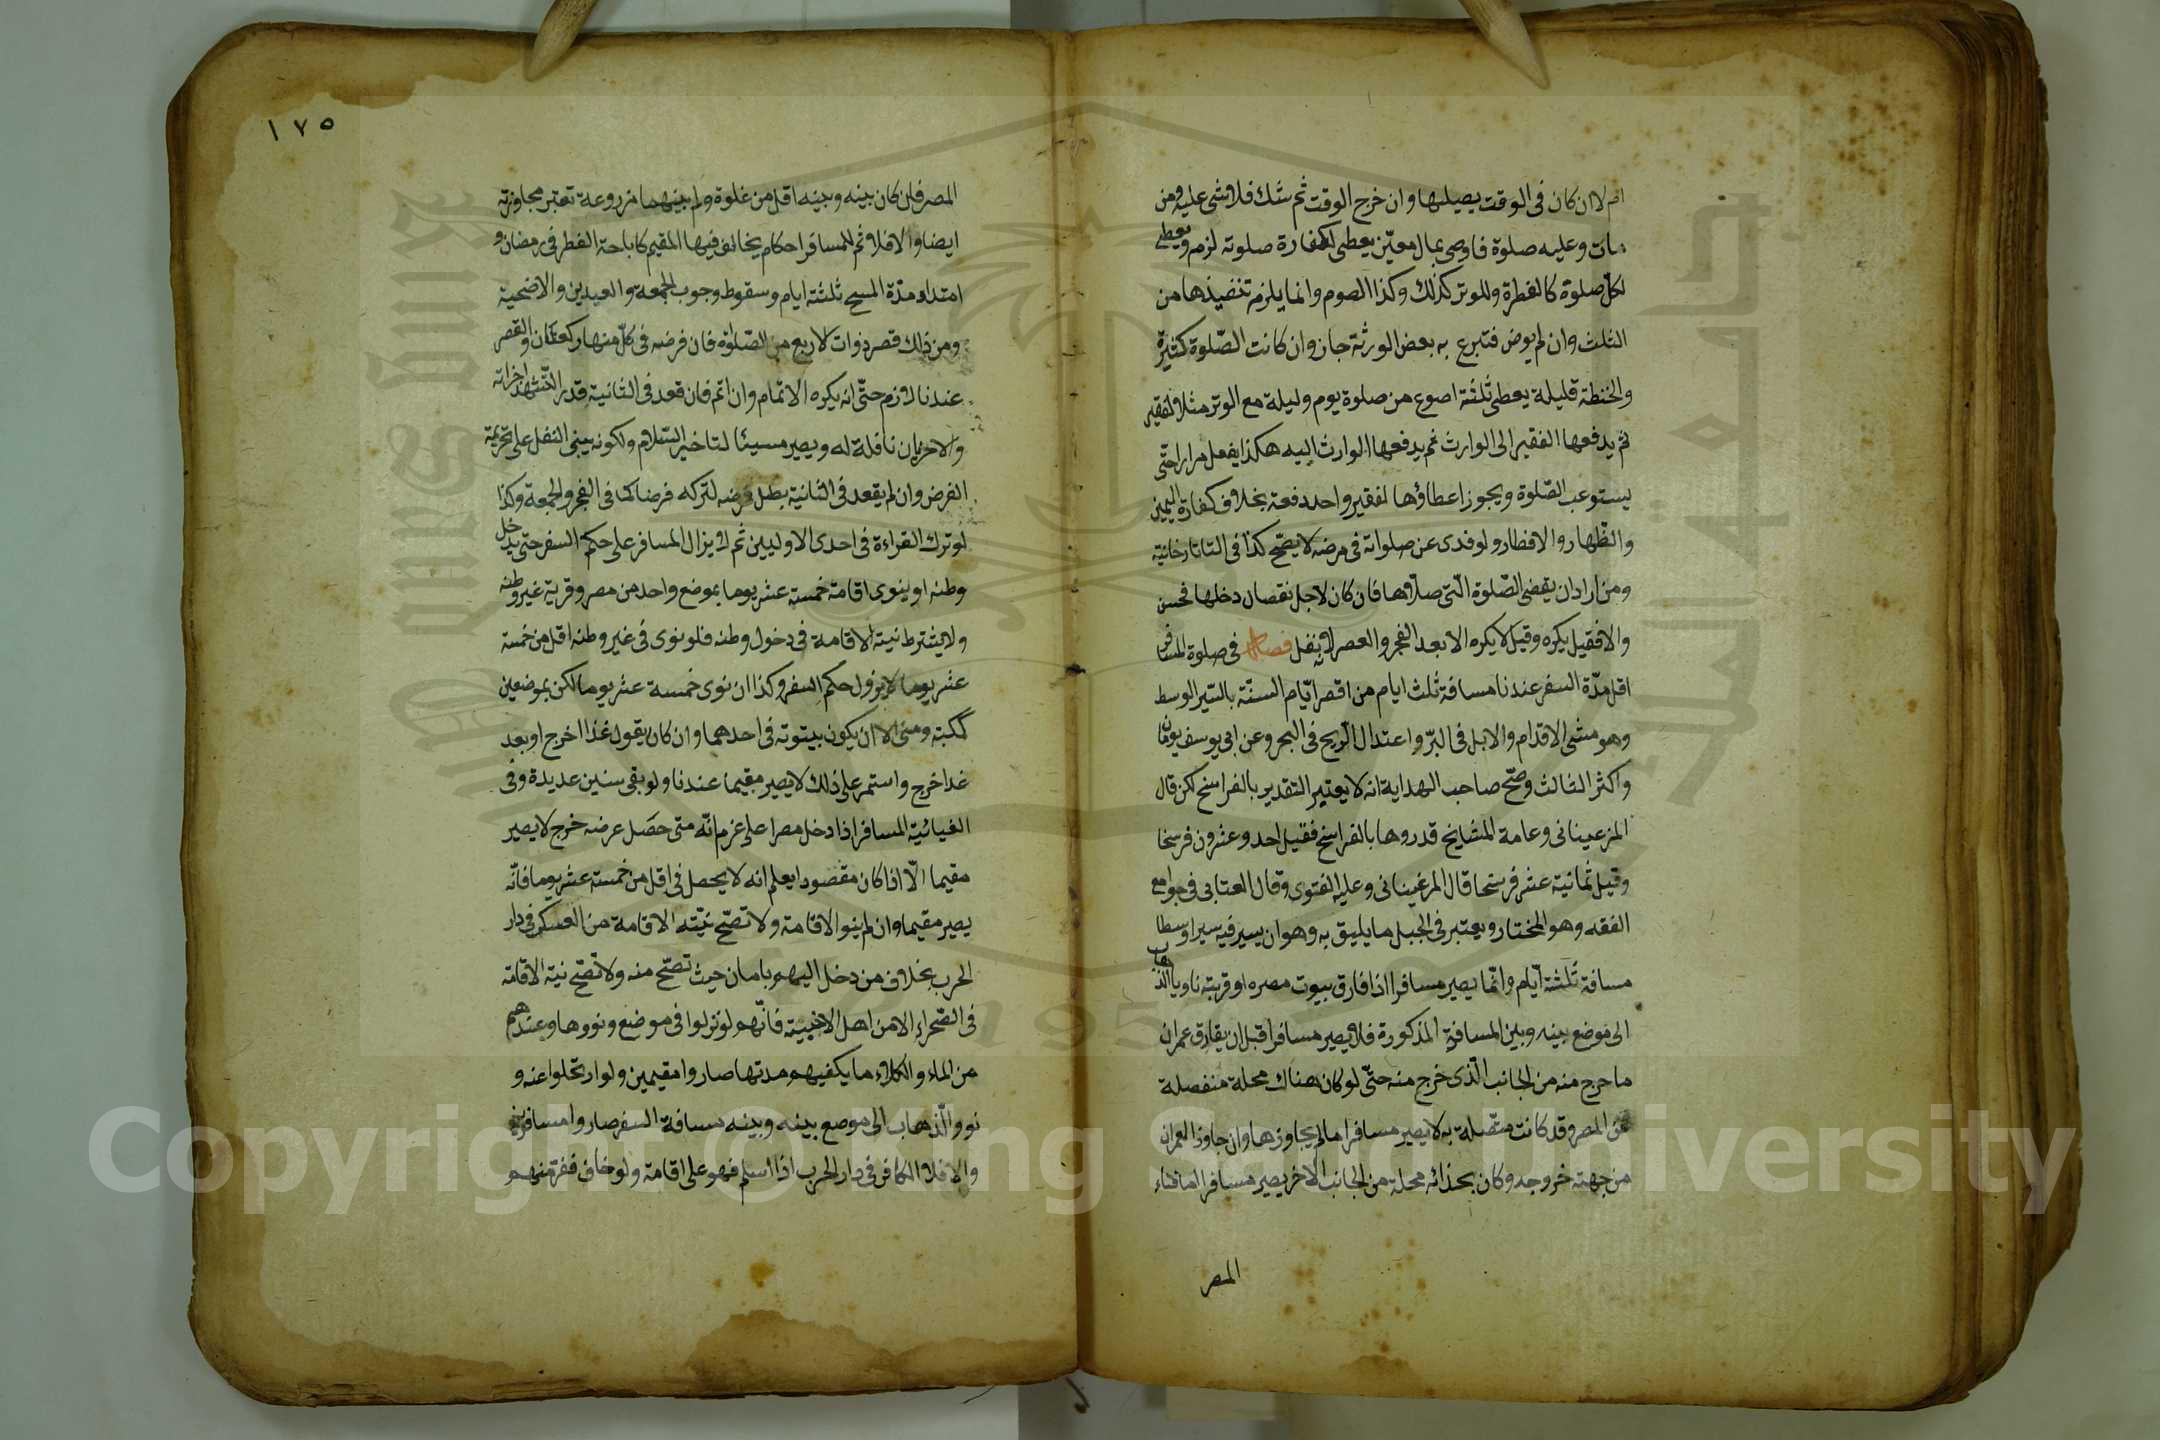 ام لا ان كان فى الوقت يصيلها وان خرج الوقت ثم شك فلا شئ عليه ومن
مات وعليه صلوة فاوصى بمال معيّن يعطى لكفارة صلوته لزم ويعطى
لكلّ صلوة كالفطرة وللوتر كذلك وكذا الصوم وانما يلزم تنفيذها من
الثلث وان لم يوص فتبرع به بعض الورثة جاز وان كانت الصّلوة كثيرة
والحنطة قليلة يعطى ثلثة اصوع من صلوة يوم وليلة مع الوتر مثلا لفقير
ثم يدفعها الفقير الى الوارث ثم يدفعها الوارث اليه هكذا يفعل مرارا حتّى
يستوعب الصّلوة ويجوز اعطاؤها لفقير واحد دفعة بخلاف كفارة اليمين
والظّهار والافطار ولو فدى عن صلواته فى مرضه لا يصحّ كذا فى التاتارخانية
ومن اراد ان يقضى الصّلوة الّتى صلاّها فان كان لاجل نقصان دخلها فحسن
والا فقيل يكره وقيل لا يكره الا بعد الفجر والعصر لانّه نفل فصل فى صلوة المسافر
اقل مدّة السفر عندنا مسافة ثلث ايام من اقصر ايّام السنّة بالسّير الوسط
وهو مشى الاقدام والابل فى البرّ واعتدال الرّيح فى البحر وعن ابى يوسف يومان
واكثر الثالث وصحّ صاحب الهداية انه لا يعتبر التقدير بالفراسخ لكن قال
المرغينانى وعامة المشايخ قدروها بالفراسخ فقيل احد وعشرون فرسخا
وقيل ثمانية عشر فرسخا قال المرغينانى وعليه الفتوى وقال العتابى فى جوامع
الفقه وهو المختار ويعتبر فى الجبل ما يليق به وهو ان يسير فيه سيرا وسطا
مسافة ثلثة ايّام وانّما يصير مسافرا اذا فارق بيوت مصره او قريته ناويا الذهاب
الى موضع بينه وبين المسافة المذكورة فلا يصير مسافرا قبل ان يفارق عمران
ما خرج منه من الجانب الّذى خرج منه حتّى لو كان هناك محلة منفصلة
عن المصر وقد كانت متّصلة به لا يصير مسافرا ما لم يجاوزها وان جاوز العمران
من جهة خروجه وكان بحذائه محلة من الجانب الاخر يصير مسافرا اما فناء
المصر
١٧٥
المصر فان كان بينه وبينه اقل من غلوة ولم بينهما مزروعة تعتبر مجاوزته
ايضا والا فلا ثم للمسافر احكام يخالف فيها المقيم كاباحة الفطر فى رمضان و
امتداد مدّة المسح ثلثة ايام وسقوط وجوب الجمعة والعيدين والاضحية
ومن ذلك قصر ذوات الاربع من الصّلوة فان فرضه فى كلّ منها ركعتان والقصر
عندنا لازم حتّى انه يكره الاتمام وان اتم فان قعد فى الثانية قدر التّشهد اجزاته
والاخريان نافلة له ويصير مسيئا لتاخير السّلام ولكونه يبنى النفل على تحريمة
الفرض وان لم يقعد فى الثانية بطل فرضه لتركه فرضا كما فى الفجر والجمعة وكذا
لو ترك القراءة فى احدى الاوليين ثم لا يزال المسافر على حكم السفر حتى يدخل
وطنه او ينوى اقامة خمسة عشر يوما بموضع واحد من مصر وقرية غير وطنه
ولا يشترط نية الاقامة فى دخول وطنه فلو نوى فى غير وطنه اقل من خمسة
عشر يوما لا يزول حكم السفر وكذا ان نوى خمسة عشر يوما لكن بموضعين
كمكة ومنى الا ان يكون بيتوته فى احدهما وان كان يقول غذا اخرج او بعد
غد اخرج واستمر على ذلك لا يصير مقيما عندنا ولو بقى سنين عديدة وفى
الغياثية المسافر اذا دخل مصرا على عزم انّه متى حصل عرضه خرج لا يصير
مقيما الّا اذا كان مقصودا يعلم انه لا يحصل فى اقل من خمسة عشر يوما فانّه
يصير مقيما وان لم ينو الاقامة ولا تصحّ نيّته الاقامة من العسكر فى دار
الحرب بخلاف من دخل اليهم بامان حيث تصحّ منه ولا تصحّ نية الاقامة
فى الصّحراء الا من اهل الاخبية فانّهم لو نزلوا فى موضع ونووها وعندهم
من الماء والكلاء ما يكفيهم مدتها صاروا مقيمين ولو ارتحلوا عنه و
نووا الّذهاب الى موضع بينه وبينه مسافة السفر صاروا مسافرين
والا فلا الكافر فى دار الحرب اذا اسلم فهو على اقامة ولو خاف ففر منهم
Copyright © King Saud University